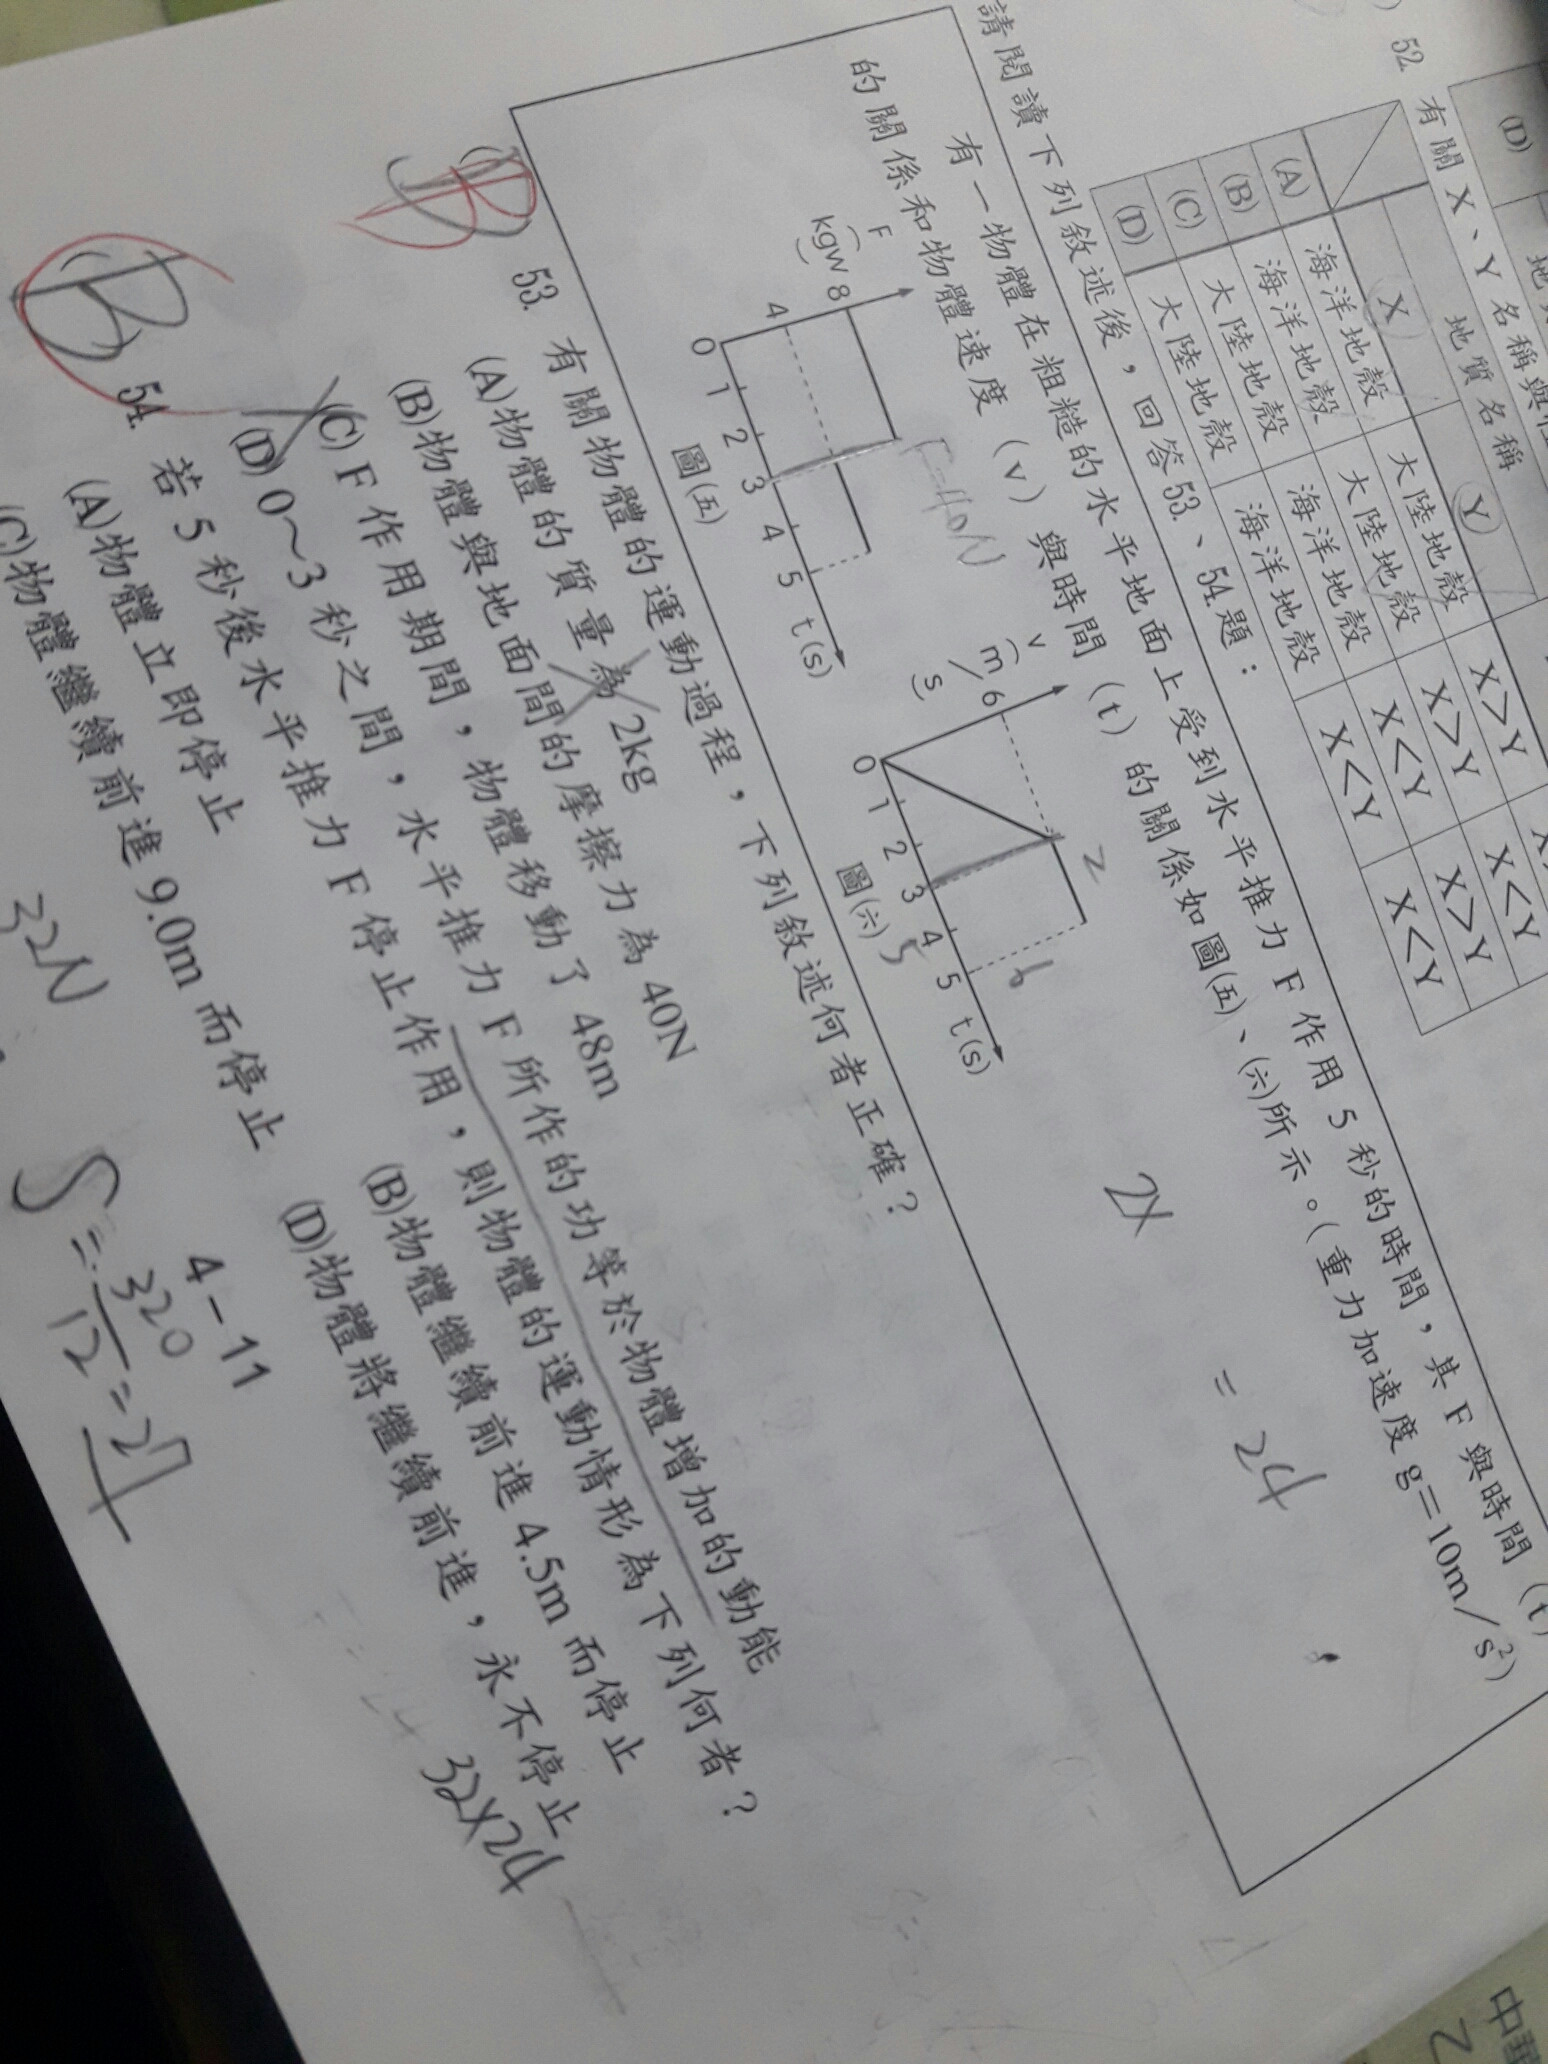 (D)
52. 有關 X、Y 名稱與
地質名稱
X Y
(A) 海洋地殼 大陸地殼 X＞Y X＜Y
(B) 海洋地殼 大陸地殼 X＞Y X＞Y
(C) 大陸地殼 海洋地殼 X＜Y X＜Y
(D) 大陸地殼 海洋地殼 X＜Y
請閱讀下列敘述後，回答53、54.題：
有一物體在粗糙的水平地面上受到水平推力 F 作用 5 秒的時間，其 F 與時間（t）
的關係和物體速度（v）與時間（t）的關係如圖(五)、(六)所示。（重力加速度 g＝10m/s²）
F
(kgw)
8
4
0 1 2 3 4 5 t(s)
圖(五)
F=40N
v
(m/s)
6
0 1 2 3 4 5 t(s)
圖(六)
2
5
6
2X
= 24
B 53. 有關物體的運動過程，下列敘述何者正確？
(A)物體的質量為 2kg
(B)物體與地面間的摩擦力為 40N
(C) F 作用期間，物體移動了 48m
(D) 0～3 秒之間，水平推力 F 所作的功等於物體增加的動能
B 54. 若 5 秒後水平推力 F 停止作用，則物體的運動情形為下列何者？
(A)物體立即停止 (B)物體繼續前進 4.5m 而停止
(C)物體繼續前進 9.0m 而停止 (D)物體將繼續前進，永不停止
32N
32X24
4－11
S=320/12=2
中